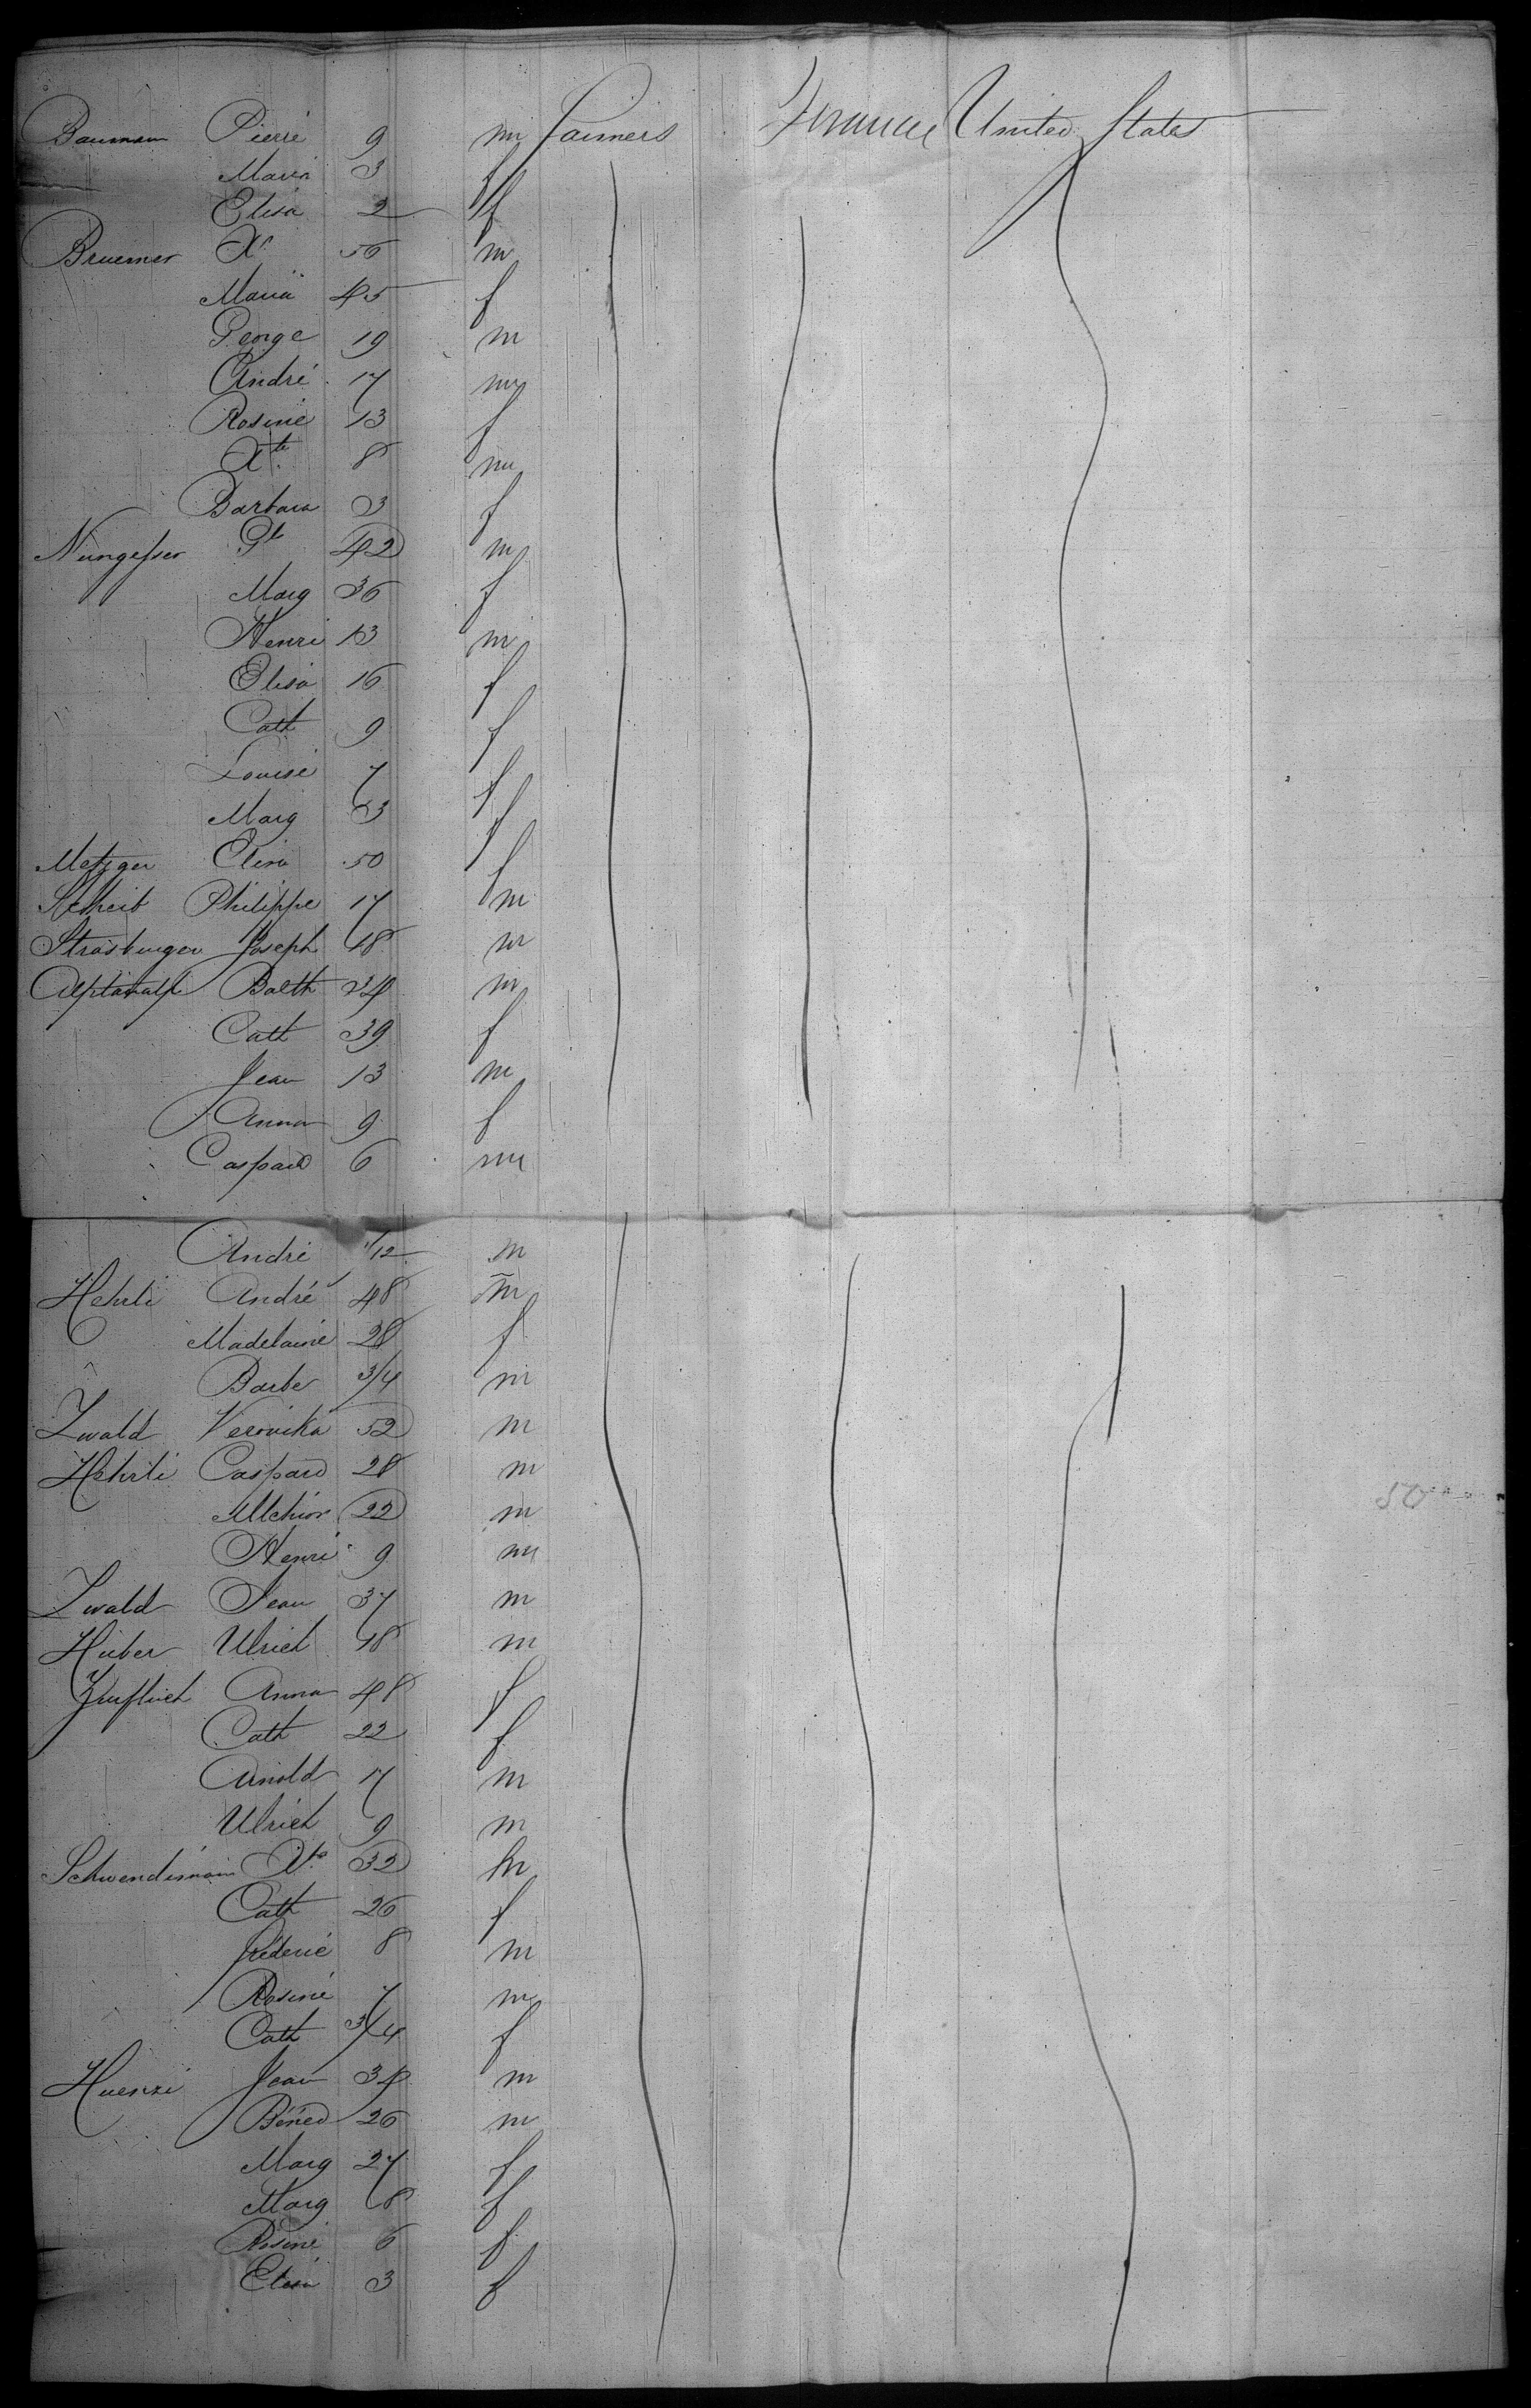 Baumann Pierre 9 m farmers France United States
Maria 3 f
Elisa 2 f
Bruemer Xr 56 m
Maria 45 f
George 19 m
André 17 m
Rosine 13 f
Xte 8 m
Barbara 3 f
Nungesser Gl 42 m
Marg 36 f
Henri 13 m
Elisa 16 f
Cath 9 f
Louise 7 f
Marg 3 f
Metzger Elisa 50 f
Scheib Philippe 17 m
Strasburger Joseph 18 m
Balth 34 m
Cath 39 f
Jean 13 m
Anna 9 f
Caspard 6 m
André 1/12 m
Hehrli André 48 m
Madelaine 28 f
Barbe 3/4 m
Zwald Veronika 52 m
Hehrli Caspard 28 m
Melchior 22 m
Henri 9 m
Zwald Jean 37 m
Huber Ulrich 18 m
Anna 48 f
Cath 22 f
Arnold 17 m
Ulrich 9 m
Schwendimann Xte 32 m
Cath 26 f
fréderic 8 m
Rosine 7 m
Cath 3/4 f
Huenzi Jean 34 m
Béned 26 m
Marg 27 f
Marg 8 f
Rosine 6 f
Elisa 3 f
50